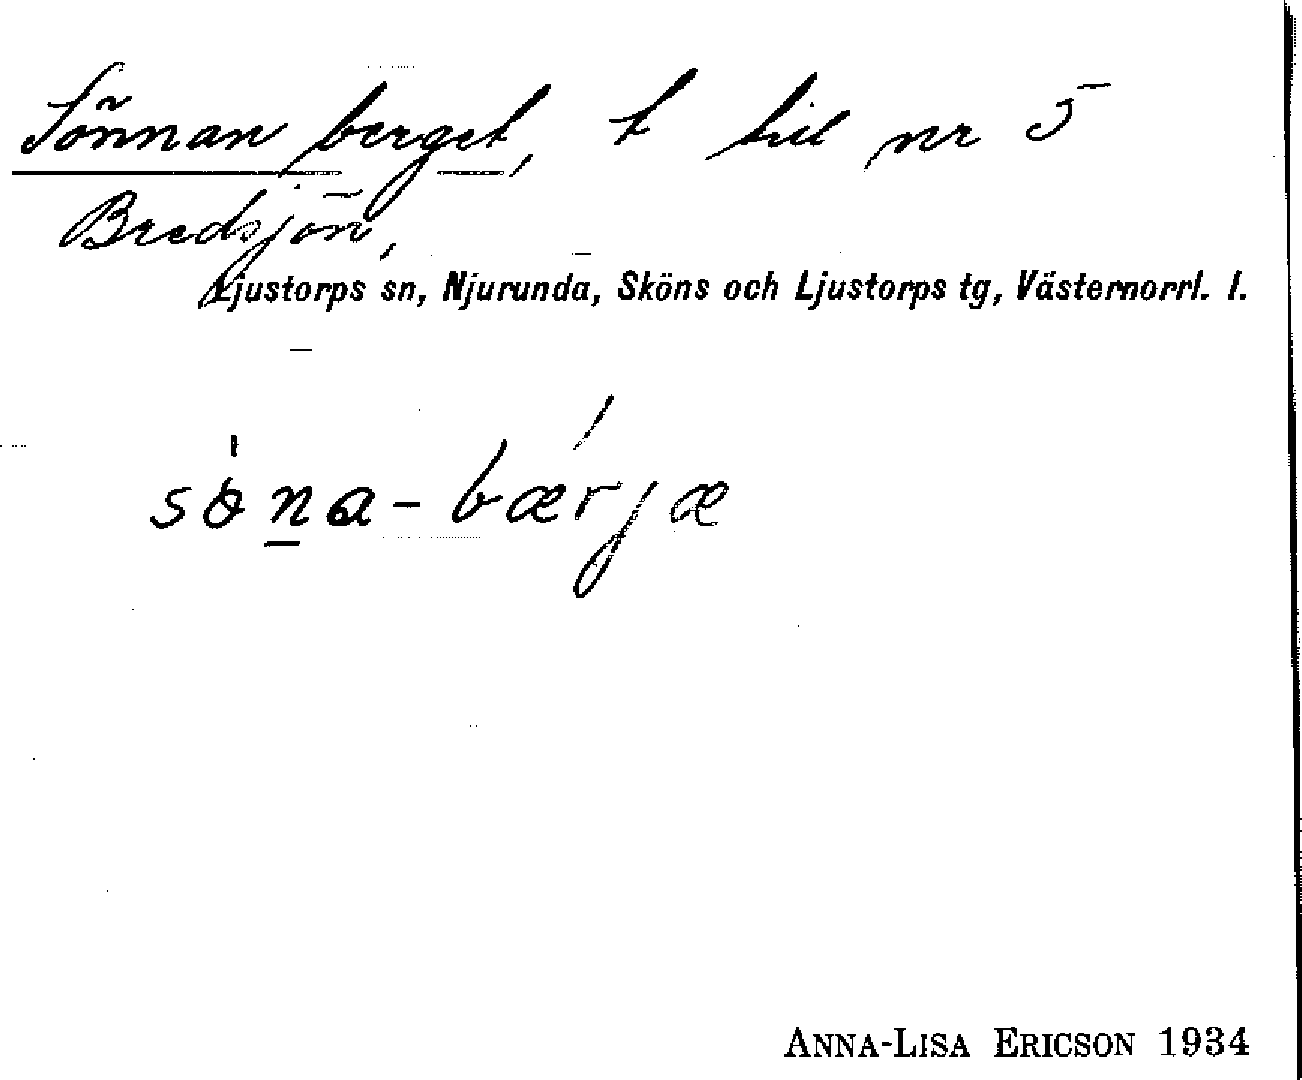 Sönnanberget, t till nr 5
Bredsjön,
Ljustorps sn, Njurunda, Sköns och Ljustorps tg, Västernorrl. l.
sòna-bærjæ
ANNA-LISA ERICSON 1934